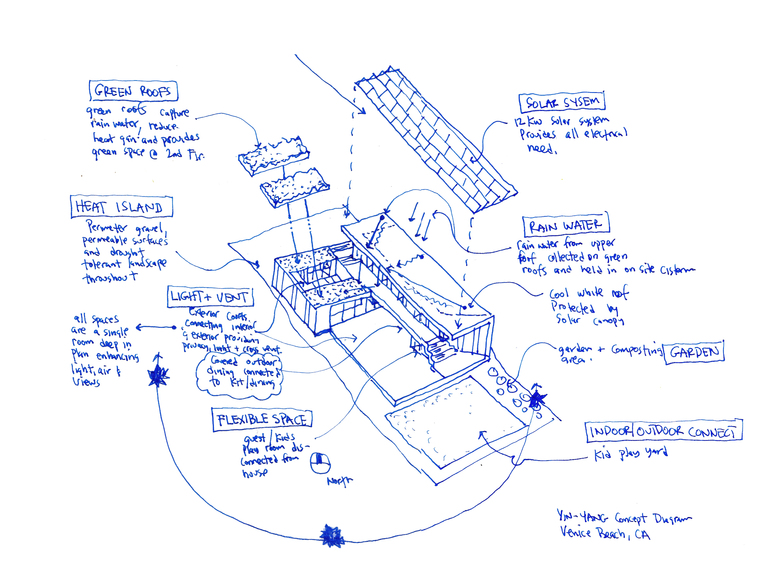 GREEN ROOFS
green roofs capture
rain water, reduce
heat gain and provides
green space @ 2nd Flr.
SOLAR SYSEM
12 KW solar system
Provides all electrical
need.
HEAT ISLAND
Perimeter gravel,
permeable surfaces
and drought
tolerant landscape
throughout
RAIN WATER
rain water from upper
roof collected on green
roofs and held in on site cistern
Cool white roof
Protected by
Solar canopy
LIGHT + VENT
Exterior corrs.
connecting interior
& exterior providing
privacy, light + cross vent.
all spaces
are a single
room deep in
plan enhancing
light, air &
views
Covered outdoor
dining connected
to Kit/dining
garden + composting
area.
GARDEN
FLEXIBLE SPACE
guest/kids
Play room dis-
connected from
house
North
INDOOR/OUTDOOR CONNECT
Kid play yard
YIN-YANG Concept Diagram
Venice Beach, CA